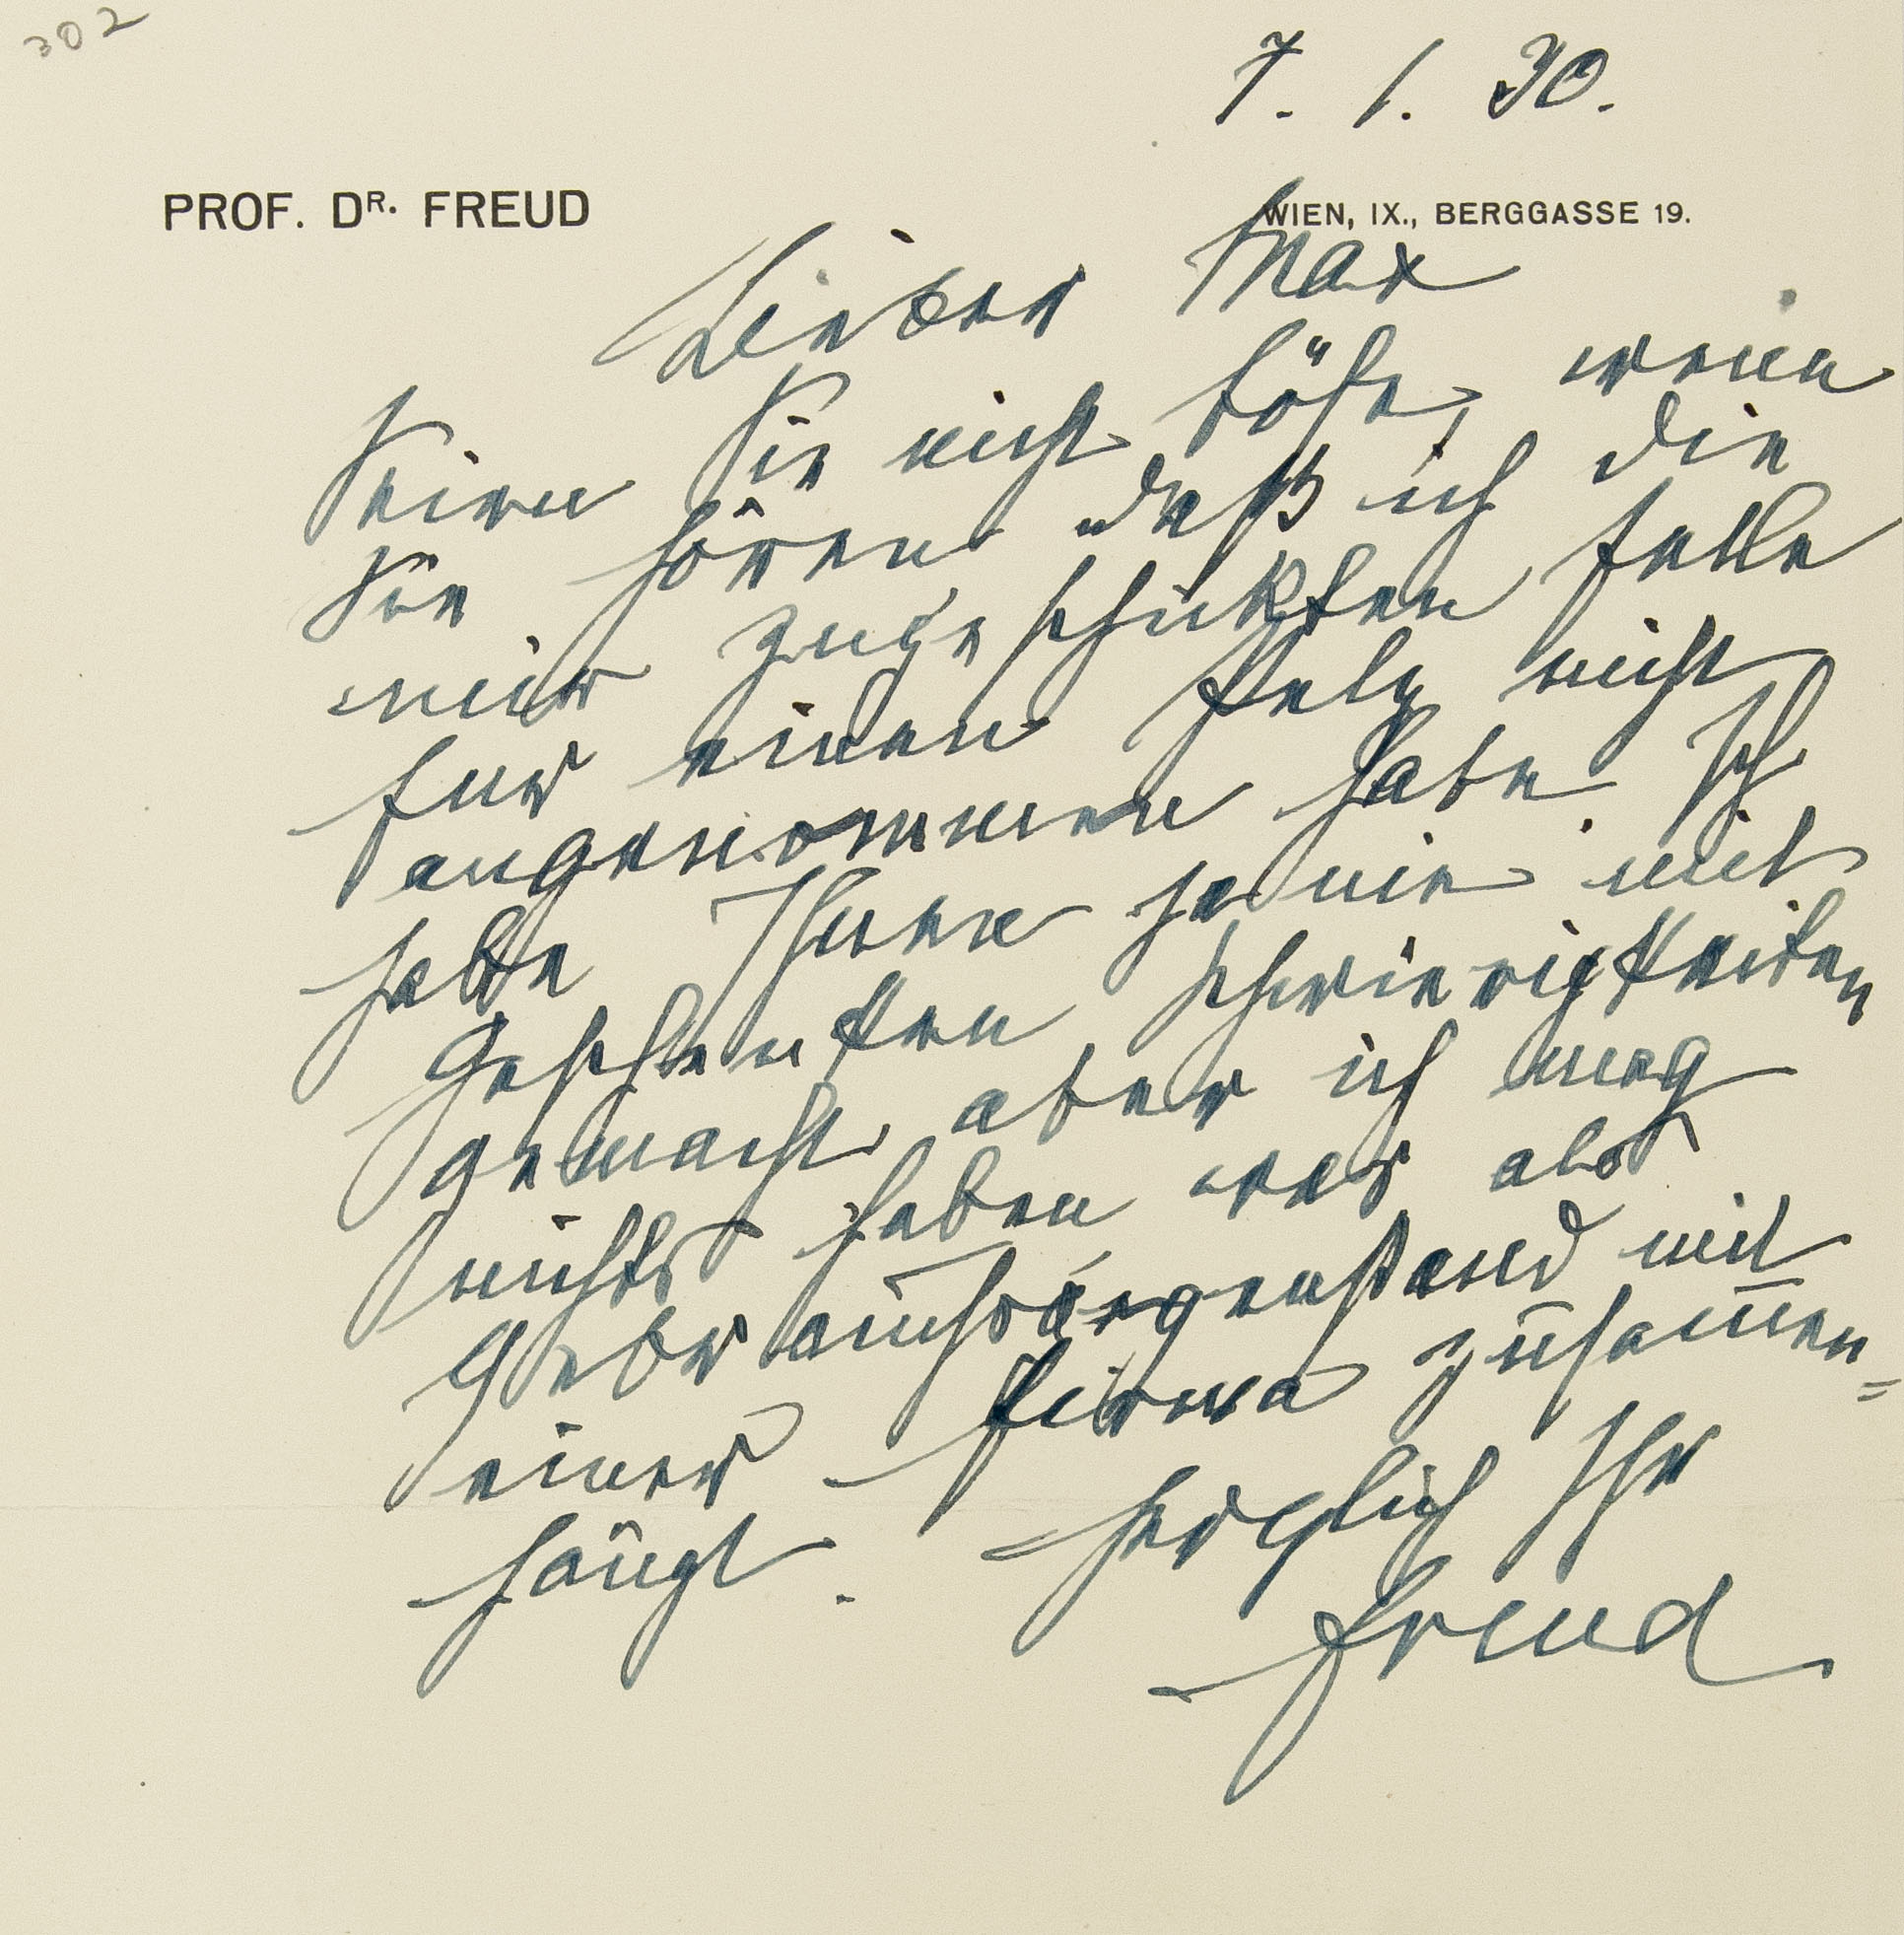 302
7. 1. 30.
PROF. DR. FREUD
WIEN, IX., BERGGASSE 19.
Lieber Max
Seien Sie nicht böse, wenn
Sie hören daß ich die
mir zugeschickten Felle
für einen Pelz nicht
angenommen habe. Ich
habe Ihnen ja nie mit
Geschenken Schwierigkeiten
gemacht, aber ich mag
nichts haben was als
Gebrauchsgegenstand mit
einer Firma zusam̅en=
hängt.
Herzlich Ihr
Freud